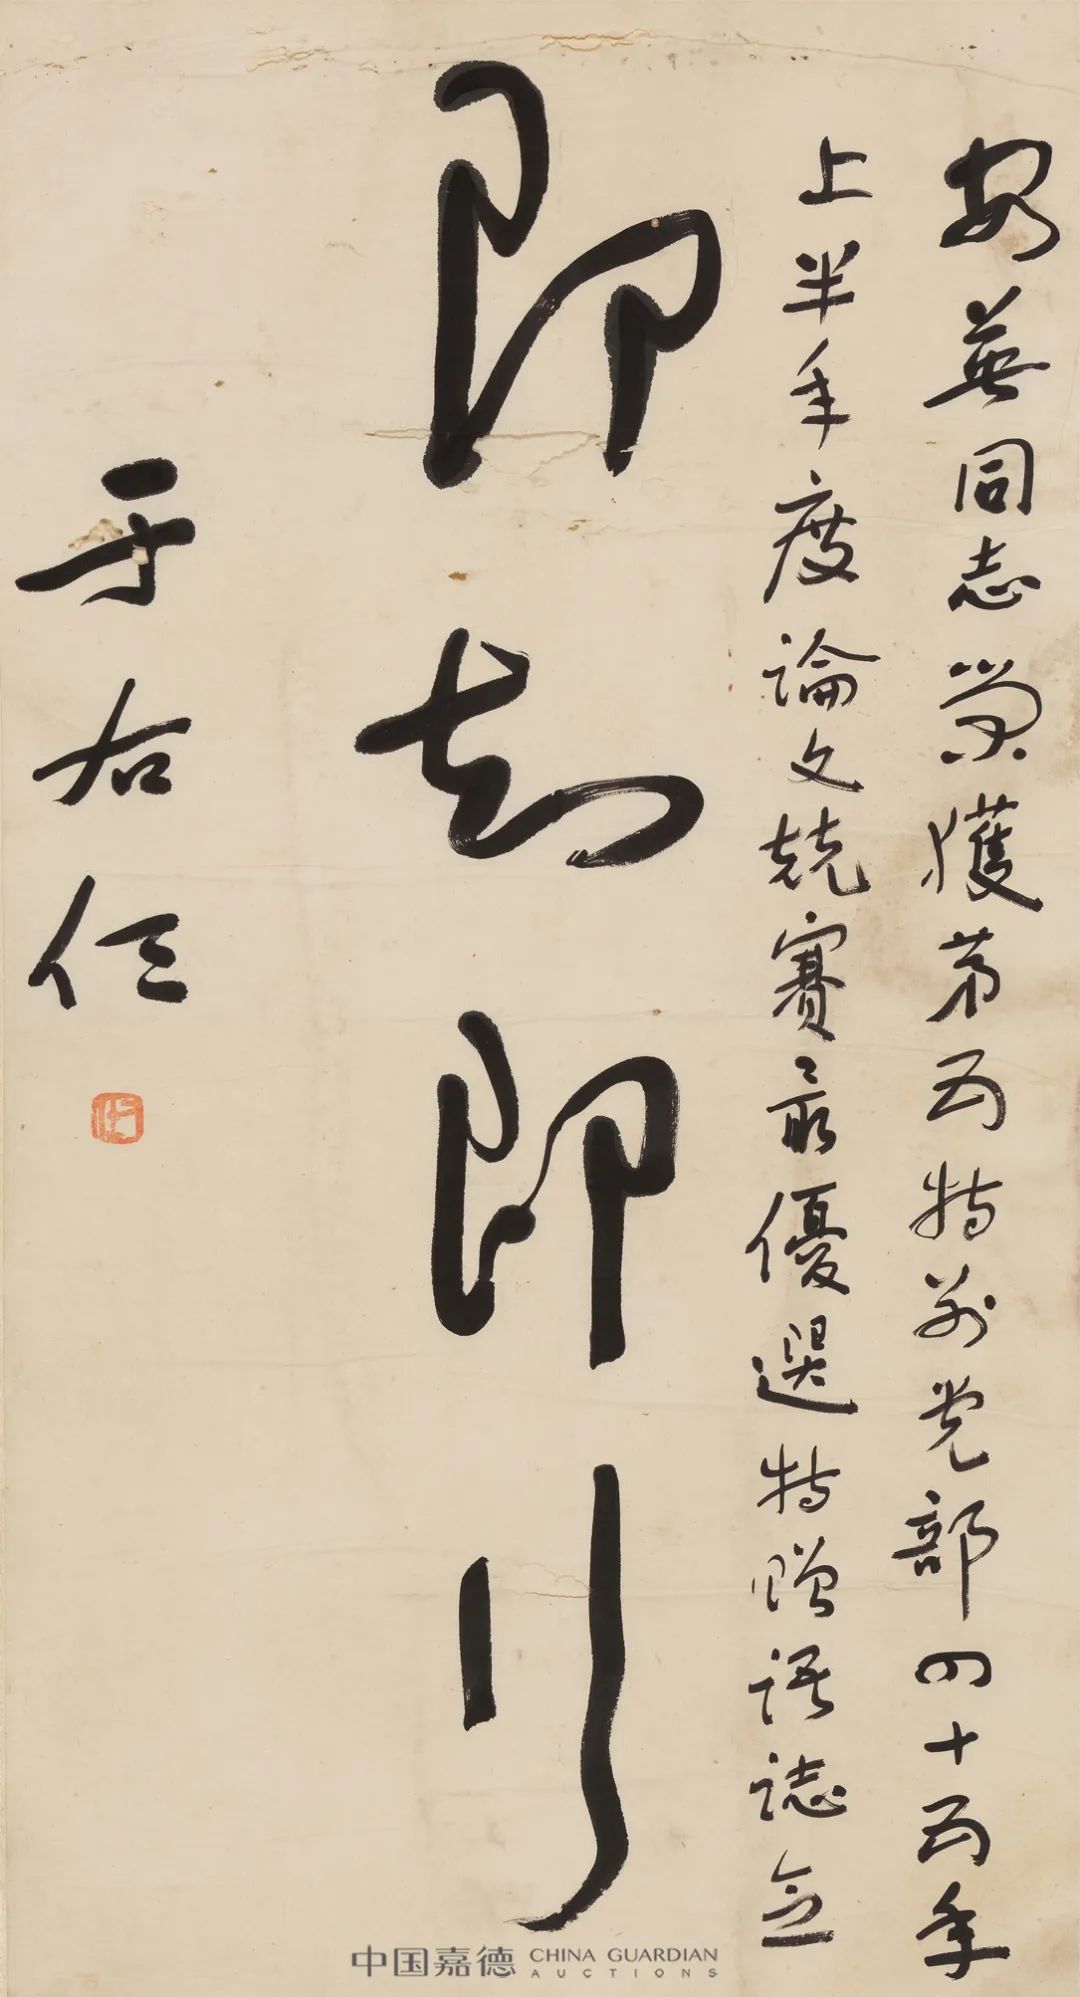 同志榮獲第五特別党部四十五年
上半年度論文競賽最優選特贈語誌念
即知即行
于右任
中国嘉德 CHINA GUARDIAN AUCTIONS